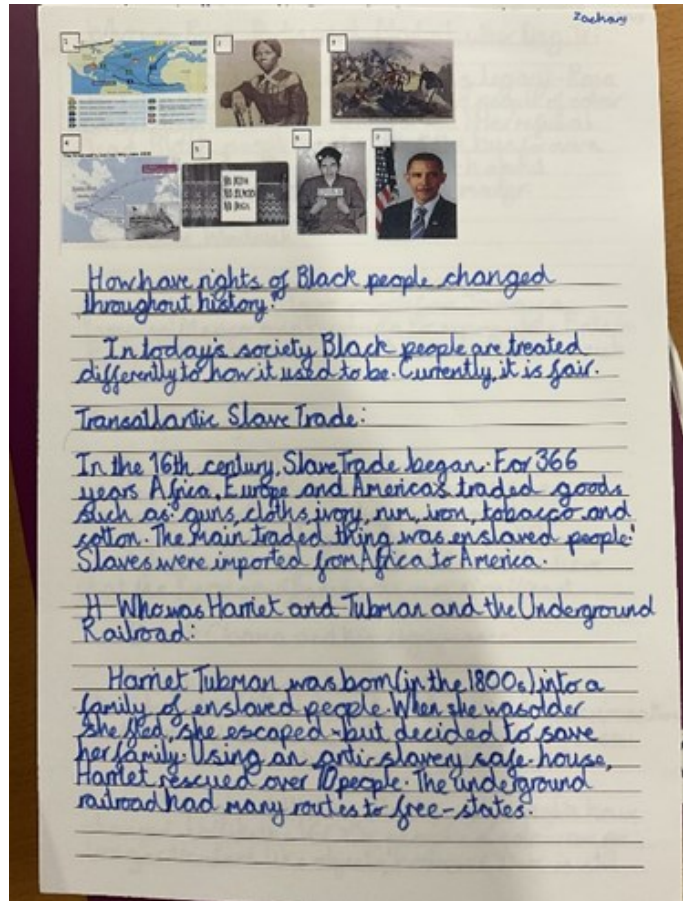 Zachary
1
2
3
4
5
6
7
How have rights of Black people changed
throughout history?
In today's society Black people are treated
differently to how it used to be. Currently, it is fair.
Transatlantic Slave Trade:
In the 16th century, Slave Trade began. For 366
years Africa, Europe and Americas traded goods
such as: guns, cloths, ivory, rum, iron, tobacco and
cotton. The main traded thing was enslaved people!
Slaves were imported from Africa to America.
H Who was Harriet and Tubman and the Underground
Railroad:
Harriet Tubman was born (in the 1800s) into a
family of enslaved people. When she was older
she fled, she escaped but decided to save
her family. Using an anti-slavery safe-house,
Harriet rescued over 70 people. The underground
railroad had many routes to free-states.